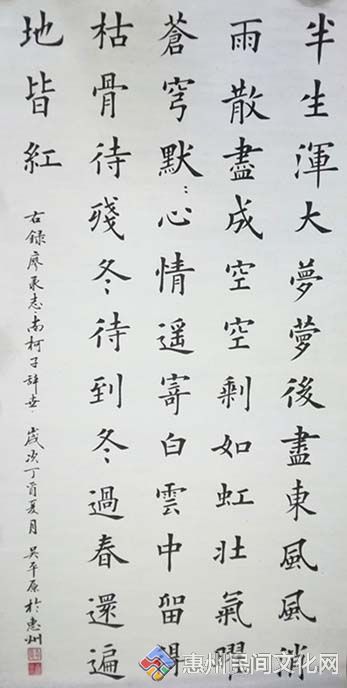 半生渾大夢夢後盡東風風消
雨散盡成空空剩如虹壯氣曜
蒼穹默〻心情遥寄白雲中留得
枯骨待殘冬待到冬過春還遍
地皆紅
右錄廖承志南柯子辞世 歲次丁酉夏月 吳平原於惠州
惠州民间文化网